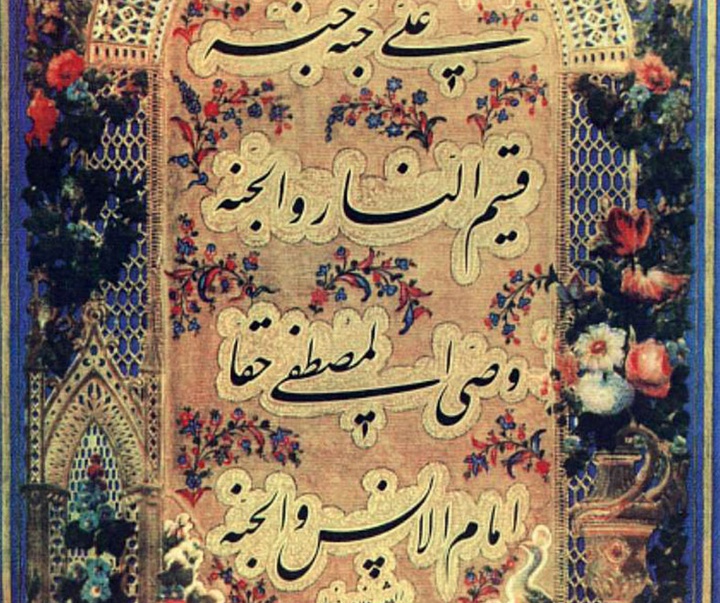 علي حبه جنه
قسیم النار والجنه
وصی المصطفی حقا
امام الانس والجنه